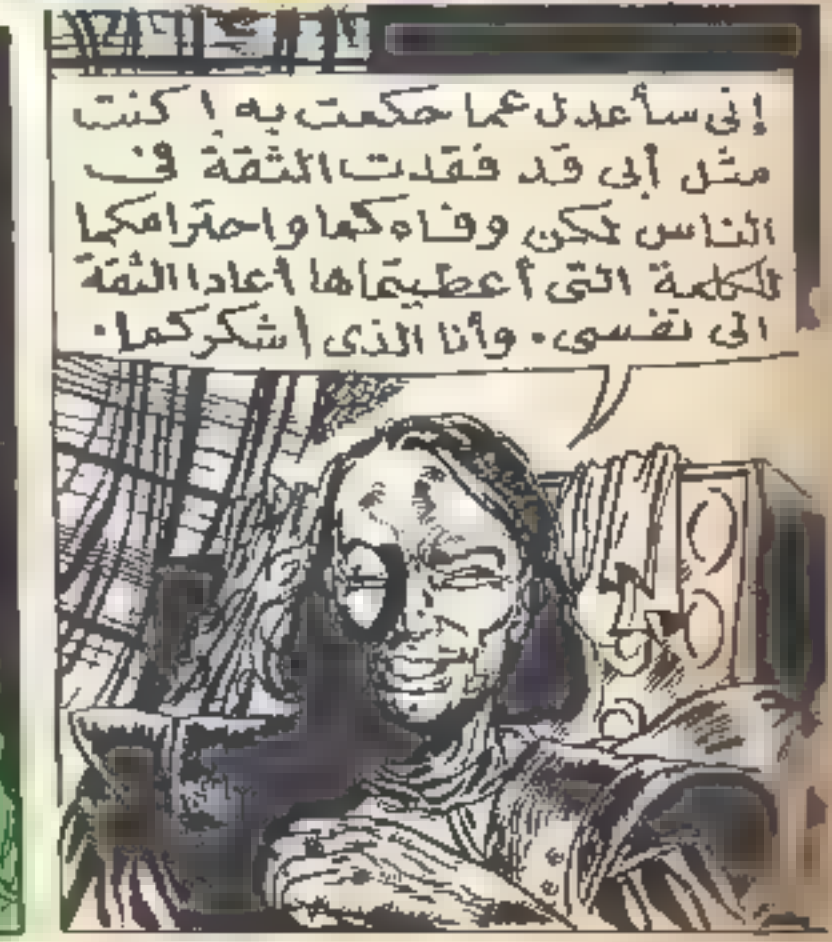 إنى سأعدل عما حكمت به ! كنت
مثل أبى قد فقدت الثقة فى
الناس لكن وفاءكما واحترامكما
للكلمة التى أعطيتماها أعادا الثقة
الى نفسى. وأنا الذى أشكركما.